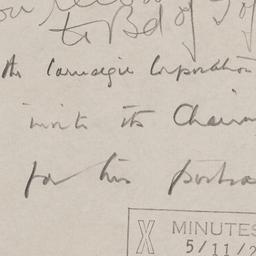 to Bd of
the Carnegie Corporation
invite its Chairm
for his portra
X MINUTES
5/11/2